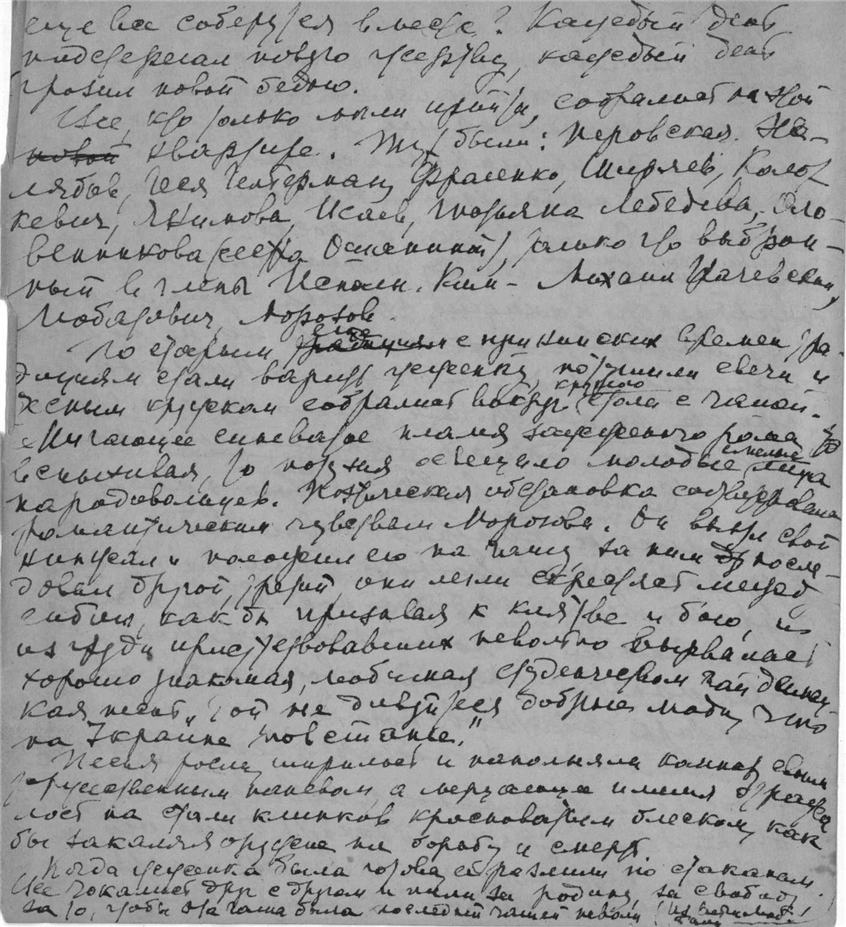 еще все соберутся вместе? Каждый день
подстерегал новую жертву, каждый день
грозил новой бедою.
Все, кто только могли притти, собрались на этой
новой квартире. Тут были: Перовская, Же-
лябов, Геся Гельфман, Фроленко, Ширяев, Колот
кевич, Якимова, Исаев, Татьяна Лебедева, Оло-
венникова (сестра Ошаниной), только что выбран-
ный в члены Исполн. Ком – Михаил Грачевский,
Любатович, Морозов.
По старым еще с при времен тра-
дициям стали варить жженку, потушили свечи и
тесным кружком собрались вокруг круглого стола с чашей.
Мигающее синеватое пламя зажженного рома то
вспыхивая, то потухая освещало молодые смелые лица
народовольцев. Поэтическая обстановка соответствовала
романтическим чувствам Морозова. Он вынул свой
кинжал и положил его на чашу, за ним после-
довал другой, третий, они легли скрестясь между
собою, как бы призывая к клятве и бою, и
из груди присутствовавших невольно вырвалась
хорошо знакомая, любимая студенчеством гайдамац-
кая песнь "Гой не дивуйтесь добрые люди, что
на Украине повстанье."
Песня росла, ширилась и наполняла комнату своим
мужественным напевом а мерцающее пламя отража
лось на стали клинков красноватым блеском, как
бы закаляя оружие на борьбу и смерть.
Когда жженка была готова, ее разлили по стаканам.
Все чокались друг с другом и пили за родину, за свободу,
за то, чтобы эта чаша была последней чашей неволи!